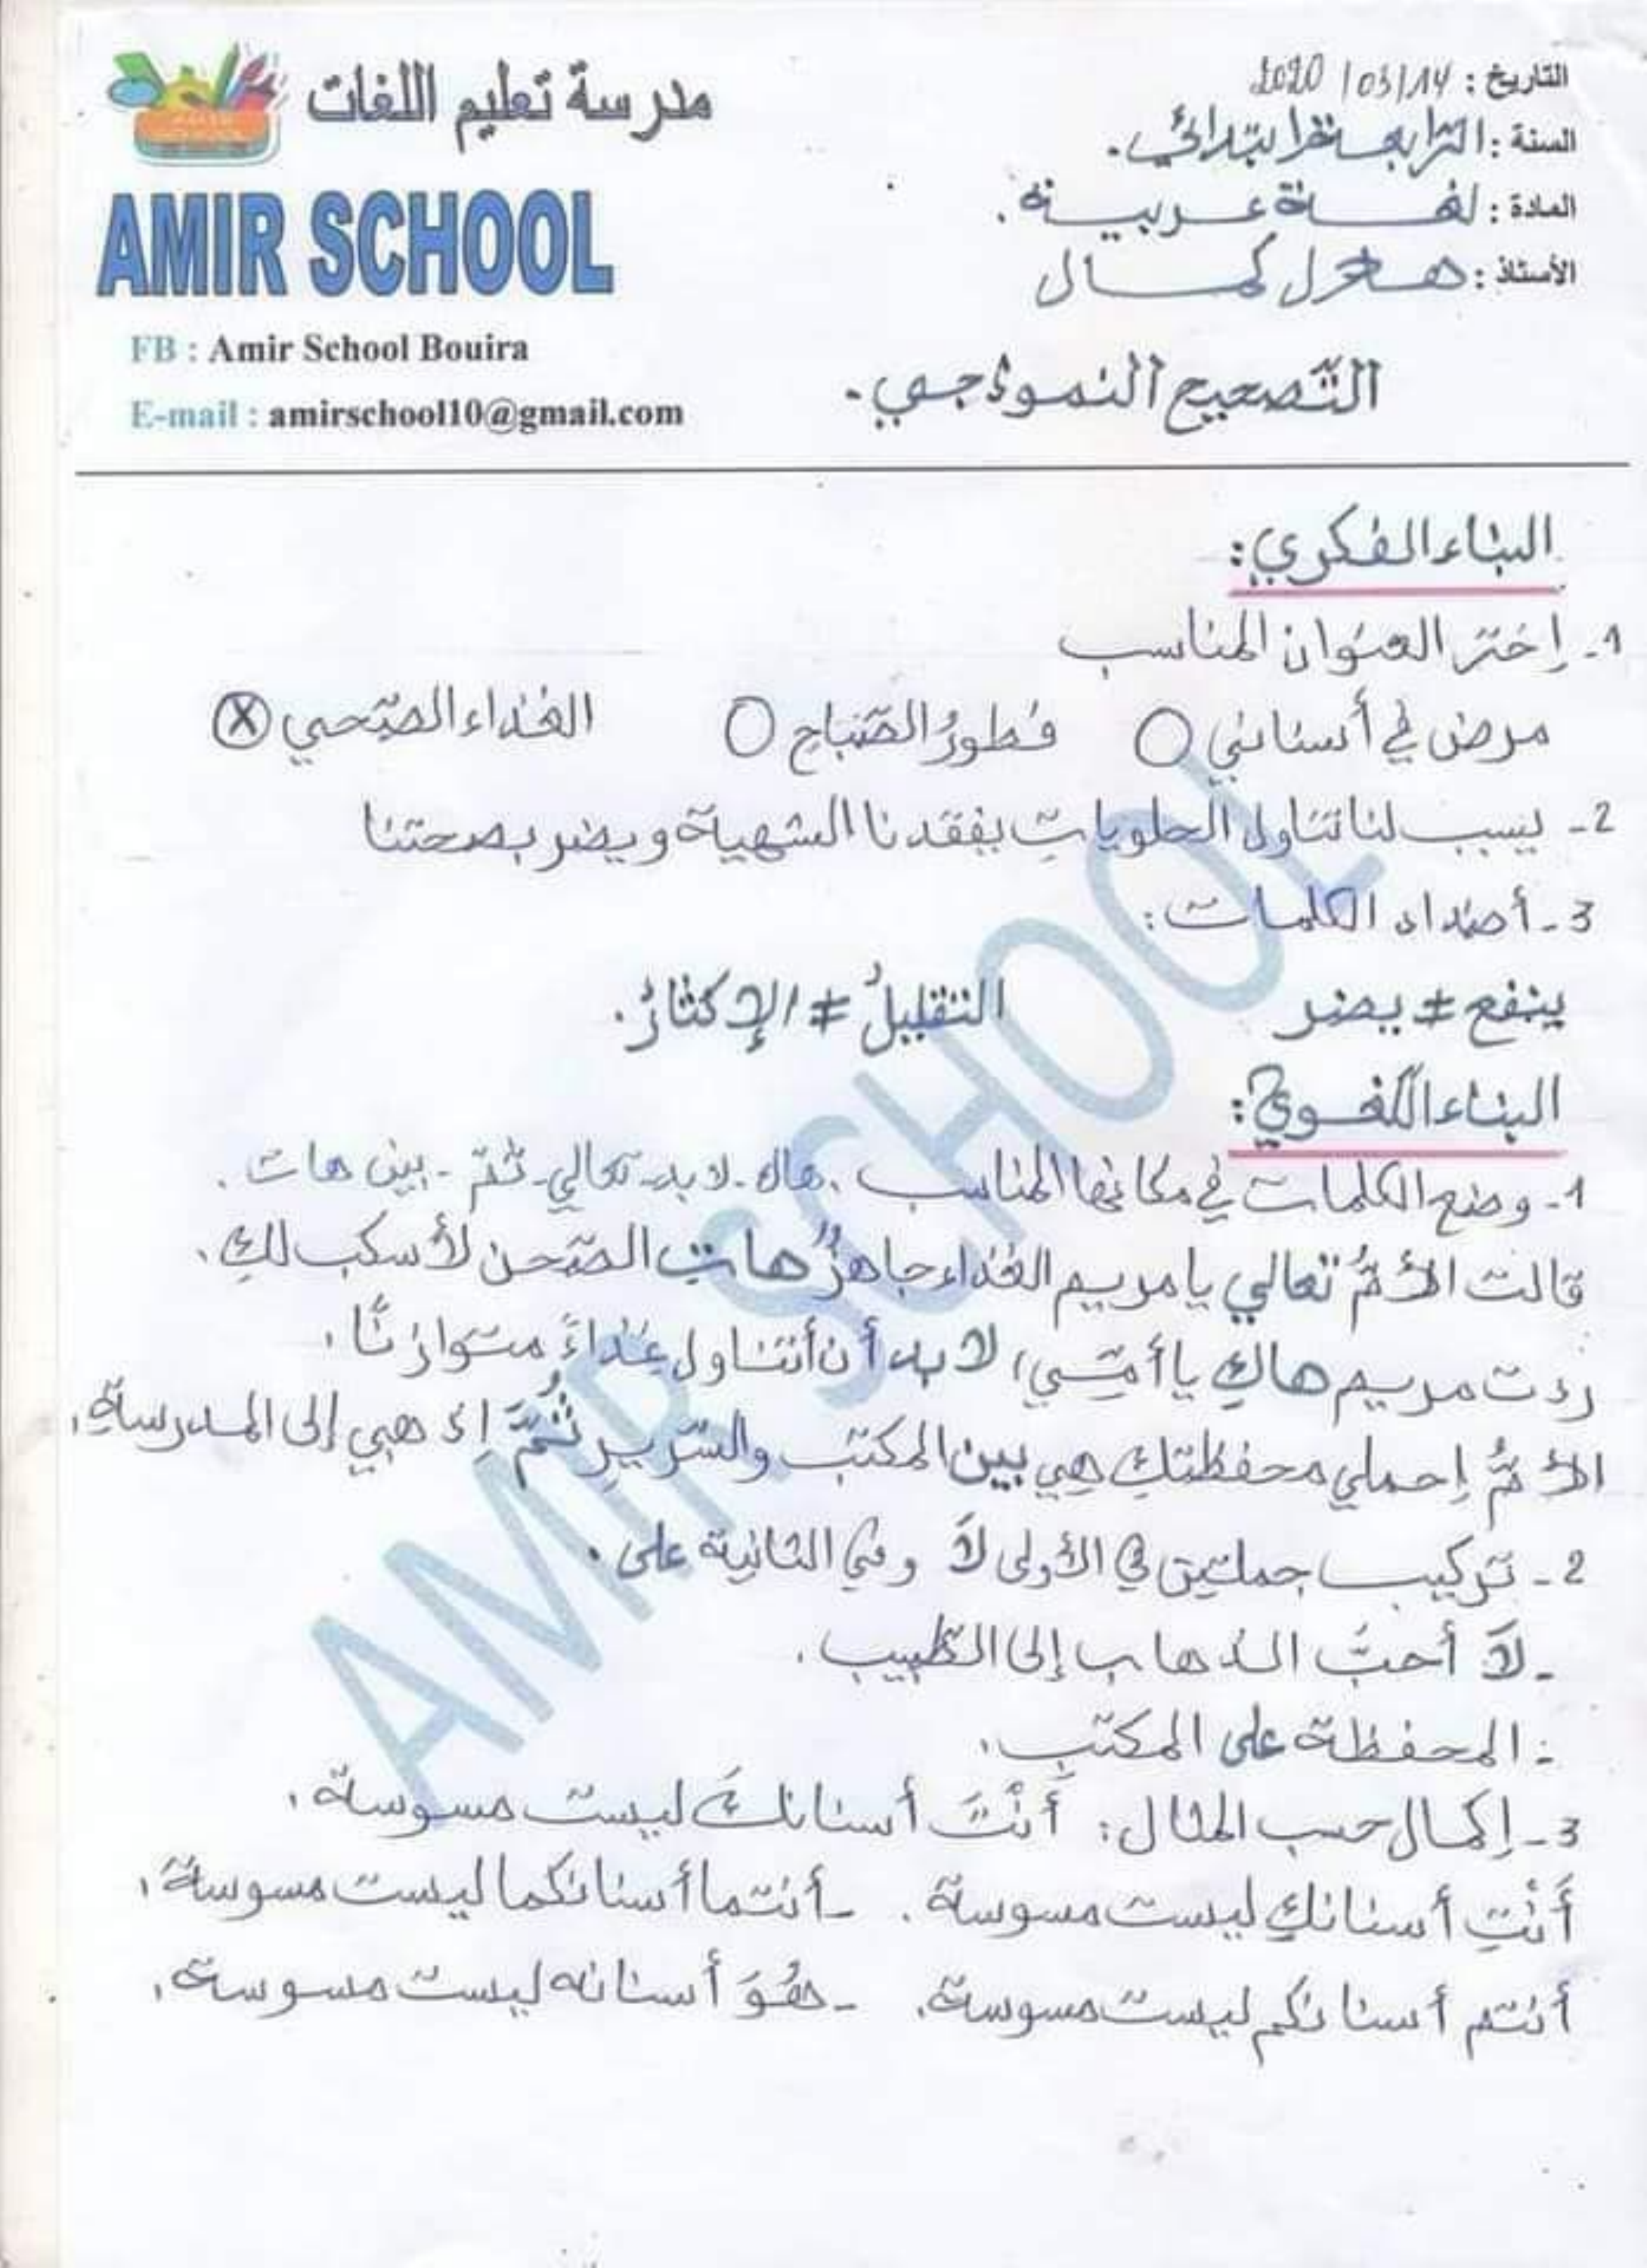 التاريخ : 2020/03/14
مدرسة تعليم اللغات
السنة : الرابعة ابتدائي.
المادة : لغة عربية.
AMIR SCHOOL
الأستاذ : كمال
FB : Amir School Bouira
التّصحيح النموذجي.
E-mail : amirschool10@gmail.com
البناء الفكري:
1- إختر العنوان المناسب
مرض في أسناني فطورُ الصّباح الغذاء الصّحي X
2- يسبب لنا تناول الحلويات يفقدنا الشهية ويضر بصحتنا
3- أضداد الكلمات:
ينفع ≠ يضر التقليلُ ≠ الإكثارُ.
البناء اللّغوي:
1- وضع الكلمات في مكانها المناسب . هاك - لا بد - تعالي - ثمّ - بين هات .
قالت الأمُّ تعالي يا مريم الغذاء جاهزٌ هاتِ الصّحن لأسكب لكِ.
ردت مريم هاكِ يا أمّي، لا بد أن أتناول غذاءً متوازنًا.
الأمُّ إحملي محفظتكِ هي بين المكتب والسّريرِ ثُمَّ إذهبي إلى المدرسةِ.
2- تركيب جملتين في الأولى لاَ وفي الثانية على.
- لاَ أحبُّ الذهاب إلى الطّبيب.
- المحفظة على المكتب.
3- إكمال حسب المثال: أَنْتَ أسنانكَ ليست مسوسة.
أَنْتِ أسنانكِ ليست مسوسة. - أنتما أسنانكما ليست مسوسة.
أنتم أسنانكم ليست مسوسة. - هُوَ أسنانه ليست مسوسة.
AMIR SCHOOL